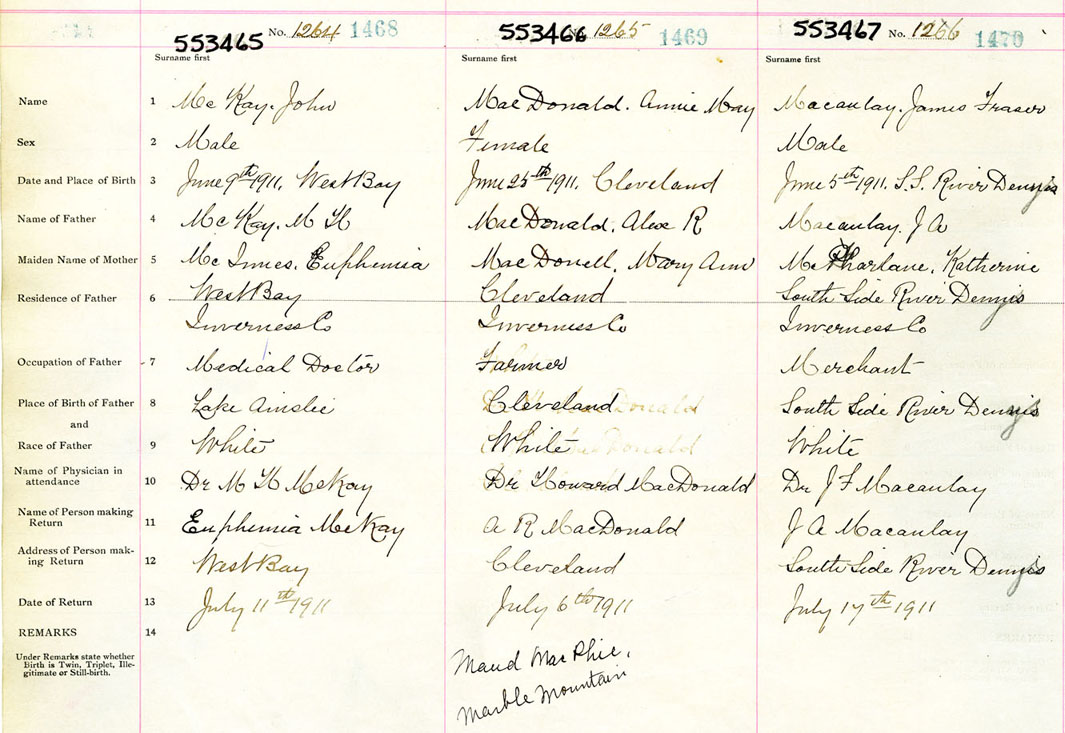 553465 No. 1264 1468 553466 No. 1265 1469 553467 No. 1266 1470
Surname first Surname first Surname first
Name 1 McKay. John MacDonald. Annie May Macaulay. James Fraser
Sex 2 Male Female Male
Date and Place of Birth 3 June 9th 1911. West Bay June 25th 1911. Cleveland June 5th 1911. S.S. River Dennis
Name of Father 4 McKay. M H MacDonald. Alex R Macaulay. J A
Maiden Name of Mother 5 McInnes. Euphemia MacDonell. Mary Ann Katherine
Residence of Father 6 West Bay Cleveland South Side River Dennis
Inverness Co Inverness Co Inverness Co
Occupation of Father 7 Medical Doctor Farmer Merchant
Place of Birth of Father 8 Lake Ainslie Cleveland South Side River Dennis
and
Race of Father 9 White White White
Name of Physician in
attendance 10 Dr M H McKay Dr Howard MacDonald Dr J F Macaulay
Name of Person making
Return 11 Euphemia McKay A R MacDonald J A Macaulay
Address of Person mak-
ing Return 12 West Bay Cleveland South Side River Dennis
Date of Return 13 July 11th 1911 July 6th 1911 July 17th 1911
REMARKS 14
Under Remarks state whether
Birth is Twin, Triplet, Ille-
gitimate or Still-birth.
Maud MacPhie,
Marble Mountain